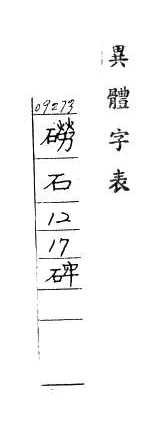 異體字表
09273
磱
石
12
17